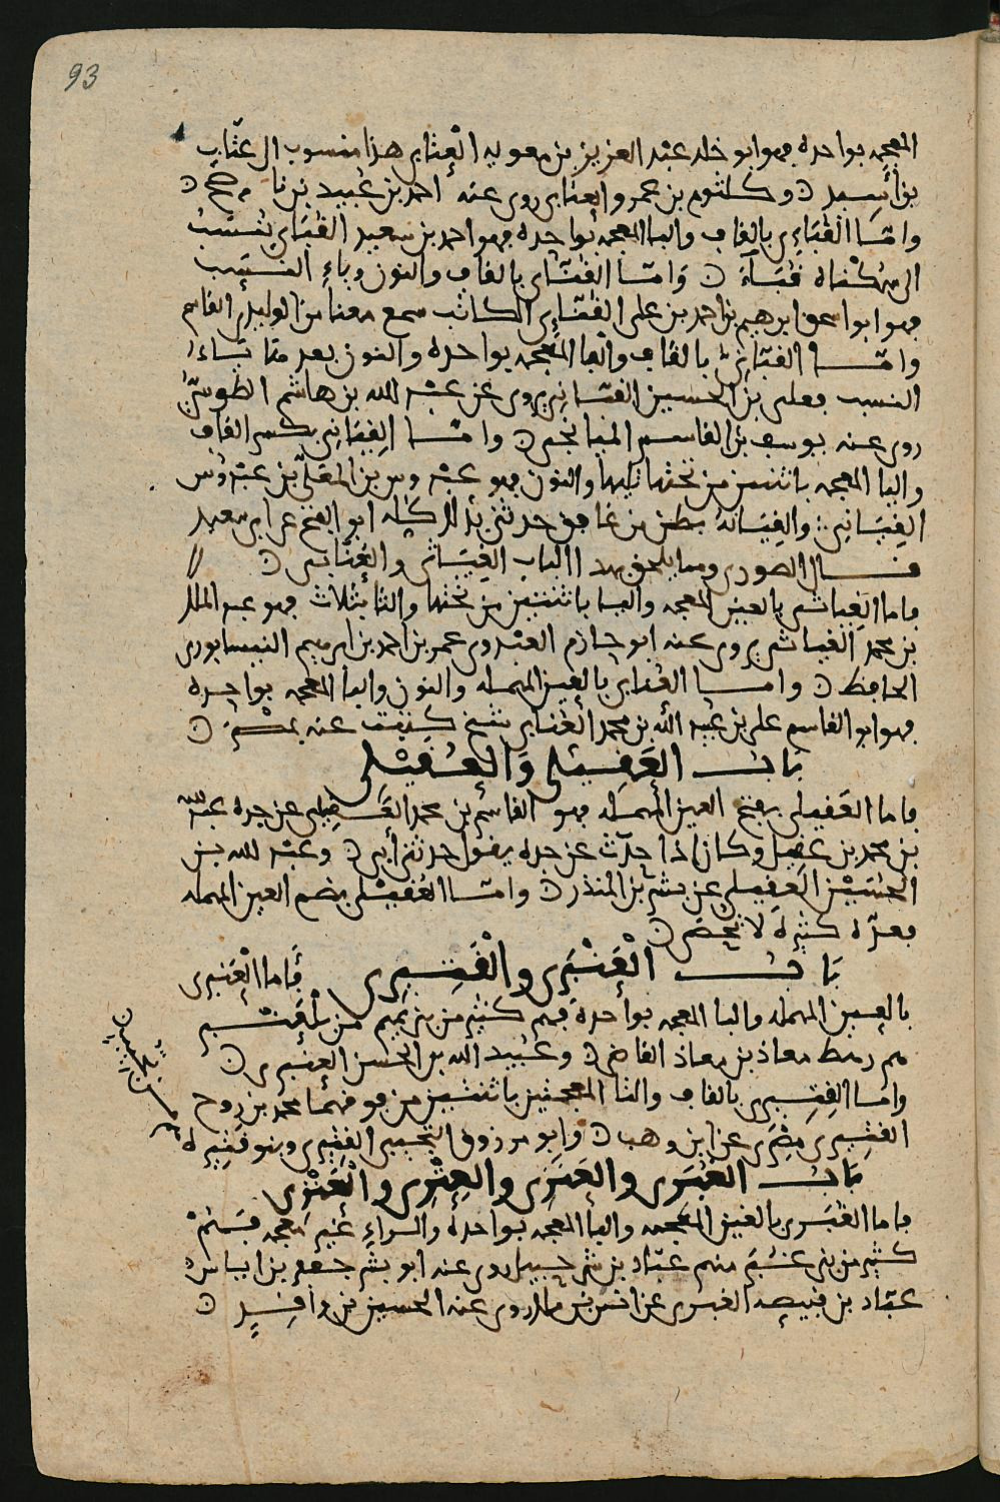 93
المعجمه بواحده فهو ابو خلد عبد العزيز بن معويه العتابي هذا منسوب الى عتاب
بن أسيد وكلثوم بن عمرو العتابي روى عنه احمد بن عبيد بن
وامّا القُبَاءِي بالقاف والبا المعجمه بواحده فهو احمد بن سعيد القُبَاي يُنسَبُ
الى قُبَآءَ وَامّا القُنّاي بالقاف والنون وباءِ النسَب
فهو ابو اسحق ابرهيم بن احمد بن على القُنّاءِي الكاتب سمع معنا من الوليد بن القاسم
وامّا القبّانى بالقاف والبا المعجمه بواحده والنون بعد
النسب فعلى بن الحسين القبّانى يروى عن عبد الله بن هاشم الطوسىّ
روى عنه يوسف بن القاسم الميانجى وامّا القِيَانى بكسر القاف
واليا المعجمه باثنتين من تحتها تليها والنون فهو عبدوس بن المعلّى بن عبدوس
القِيَانِى والقِيَانةُ بطن من غافق حدثنى بذلك كله ابو الفتح عن ابى سعيد
قال الصورى ومما يلحق بهذا الباب الغِيَاثى والعُنّابى
فاما الغِياثى بالغين المعجمه واليا باثنتين من تحتها والثا بثلاث فهو عبد الملك
بن محمد الغياثى يروى عنه ابو حازم العبدوى عمر بن احمد بن ابرهيم النيسابورى
الحافظ وامّا العُنابى بالعين المهمله والنون والبا المعجمه بواحده
فهو ابو القاسم على بن عُبيد الله بن محمد العُنابى شيخ كتبت عنه بمصْرَ
بَابُ العَقِيلى وَالعُقَيْلى
فاما العَقيلى بفتح العين المهمله فهو القاسم بن محمد العَقِيلى عن جده عبد الله
بن محمد بن عقيل وكان اذا حدّث عن جده يقول حدثنى أبى وعبد الله بن
الحُسَيْن العَقيلى عن بشر بن المنذر وامّا العُقَيْلى بضم العين المهمله
فعدّه كثيرة لا تحصَى
بَابُ الْعَنْبَرى والْقَتِيرى فَاما الْعَنبرى
بالعين المهمله والبا المعجمه بواحدة فهم كثير من بنى تميم من بلْعَنْبر
هم رهط معاذ بن معاذ القاضى وعُبيد الله بن الحسن العنبرى
وامّا القِتِيرى بالقاف والتا المعجمتين باثنتين من فوقهما محمد بن روح
القتيرى مِصْرى عن ابن وهب وابو مرزوق التجيبى القتيرى وبنو قتيرة
من تجيب
بَابُ الغُبَرى والعَنَزى والعِتْرى والْعَنْزى
فاما الغُبَرى بالغين المعجمه والبا المعجمه بواحدةٍ والراءِ غير معجمه
كثير من بنى غُبَر منهم عبّاد بن شرحبيل روى عنه ابو بشر جعفر بن اياس
عبّاد بن قبيصه الغبرى عن انس بن ملك روى عنه الحسين بن واقِدٍ